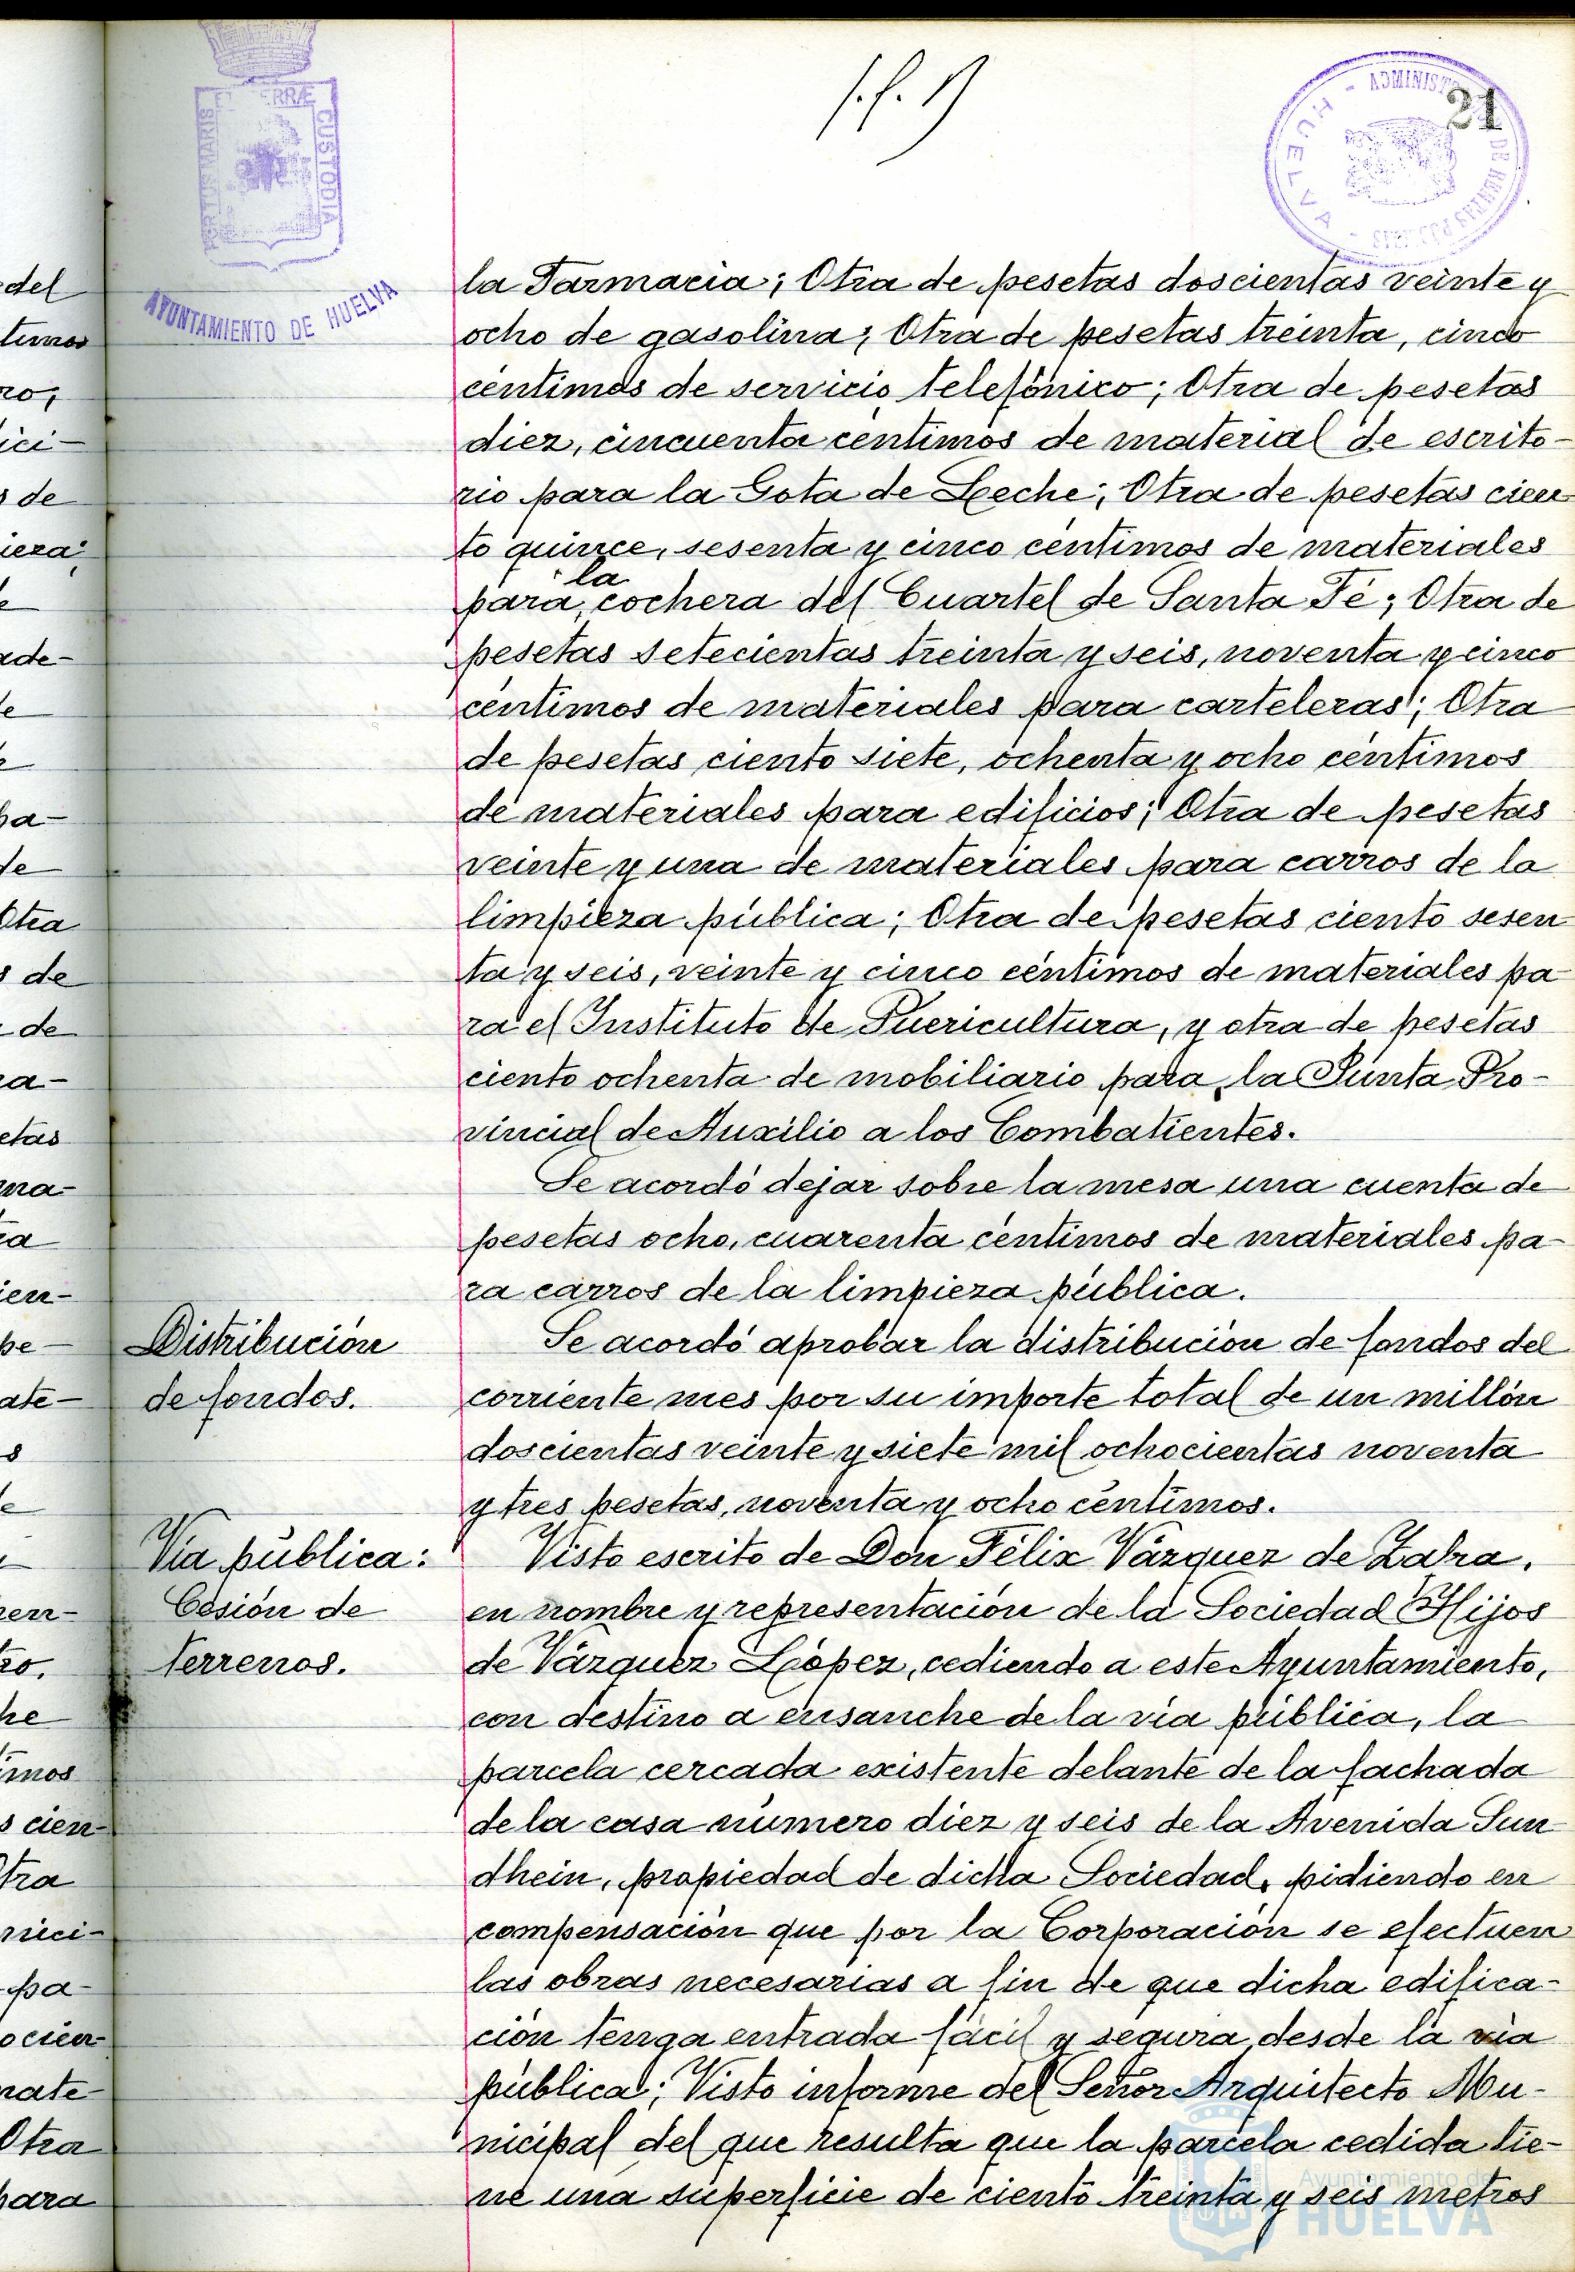 21
PORTUS MARIS ET TERRÆ CUSTODIA
AYUNTAMIENTO DE HUELVA
HUELVA
la Farmacia; Otra de pesetas doscientas veinte y
ocho de gasolina; Otra de pesetas treinta, cinco
céntimos de servicio telefónico; Otra de pesetas
diez, cincuenta céntimos de material de escrito-
rio para la Gota de Leche; Otra de pesetas cien-
to quince, sesenta y cinco céntimos de materiales
para la cochera del Cuartel de Santa Fé; Otra de
pesetas setecientas treinta y seis, noventa y cinco
céntimos de materiales para carteleras; Otra
de pesetas ciento siete, ochenta y ocho céntimos
de materiales para edificios; Otra de pesetas
veinte y una de materiales para carros de la
limpieza pública; Otra de pesetas ciento sesen
ta y seis, veinte y cinco céntimos de materiales pa
ra el Instituto de Puericultura, y otra de pesetas
ciento ochenta de mobiliario para la Junta Pro-
vincial de Auxilio a los Combatientes.
Se acordó dejar sobre la mesa una cuenta de
pesetas ocho, cuarenta céntimos de materiales pa-
ra carros de la limpieza pública.
Distribución
de fondos.
Se acordó aprobar la distribución de fondos del
corriente mes por su importe total de un millón
doscientas veinte y siete mil ochocientas noventa
y tres pesetas, noventa y ocho céntimos.
Vía pública:
Cesión de
terrenos.
Visto escrito de Don Félix Vázquez de Zafra,
en nombre y representación de la Sociedad Hijos
de Vázquez López, cediendo a este Ayuntamiento,
con destino a ensanche de la vía pública, la
parcela cercada existente delante de la fachada
de la casa número diez y seis de la Avenida Sun
dhein, propiedad de dicha Sociedad, pidiendo en
compensación que por la Corporación se efectuen
las obras necesarias a fin de que dicha edifica-
ción tenga entrada fácil y segura desde la vía
pública; Visto informe del Señor Arquitecto Mu-
nicipal del que resulta que la parcela cedida tie-
ne una superficie de ciento treinta y seis metros
Ayuntamiento de
HUELVA